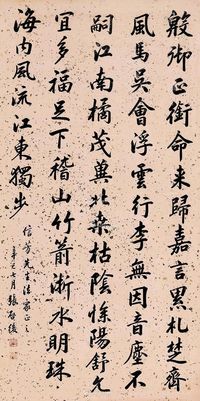 殷御正銜命来歸嘉言累札楚齊
風馬吳會浮雲行李無因音塵不
嗣江南橘茂冀北桒枯陰慘陽舒允
宜多福足下稽山竹箭浙水明珠
海內風流江東獨步
信芳先生法家正之
辛巳月張啟後